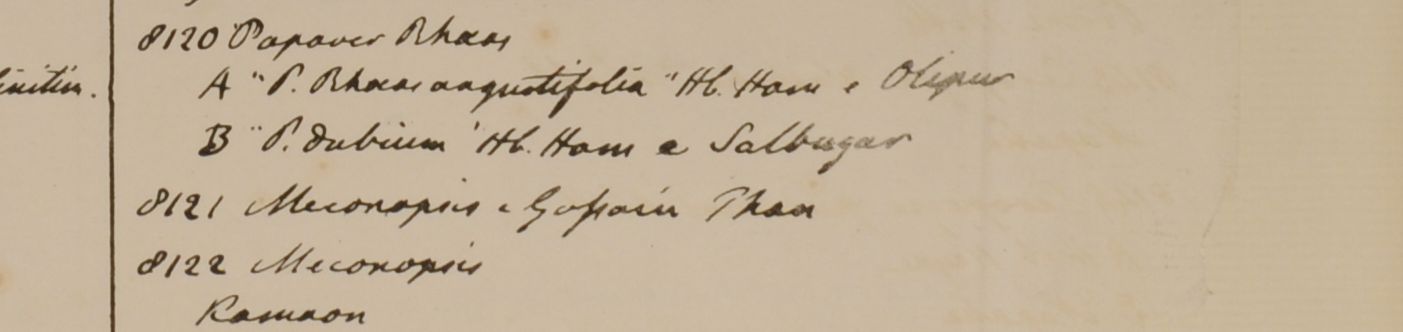 8120 Papaver Rhaeas
A "P. Rhaeas angustifolia" Hb. Ham e Olipur
B "P. dubium" Hb. Ham e Salbugar
8121 Meconopsis e Gossain Than
8122 Meconopsis
Kamaon